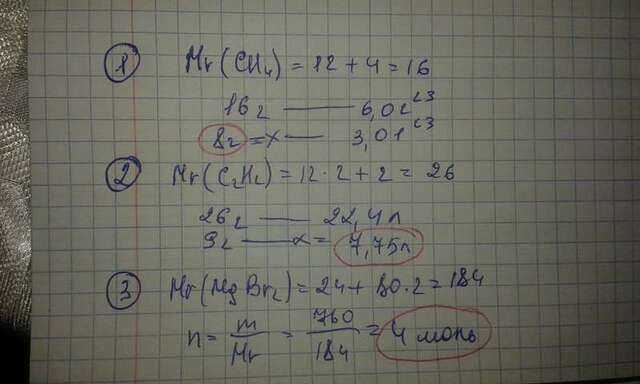 ① Mr(CH₄) = 12 + 4 = 16
16 г —— 6,02²³
8г = x —— 3,01²³
② Mr(C₂H₂) = 12 · 2 + 2 = 26
26 г —— 22,4 л
9 г —— x = 7,75 л
③ Mr(MgBr₂) = 24 + 80 · 2 = 184
n = m/Mr = 760/184 = 4 моль